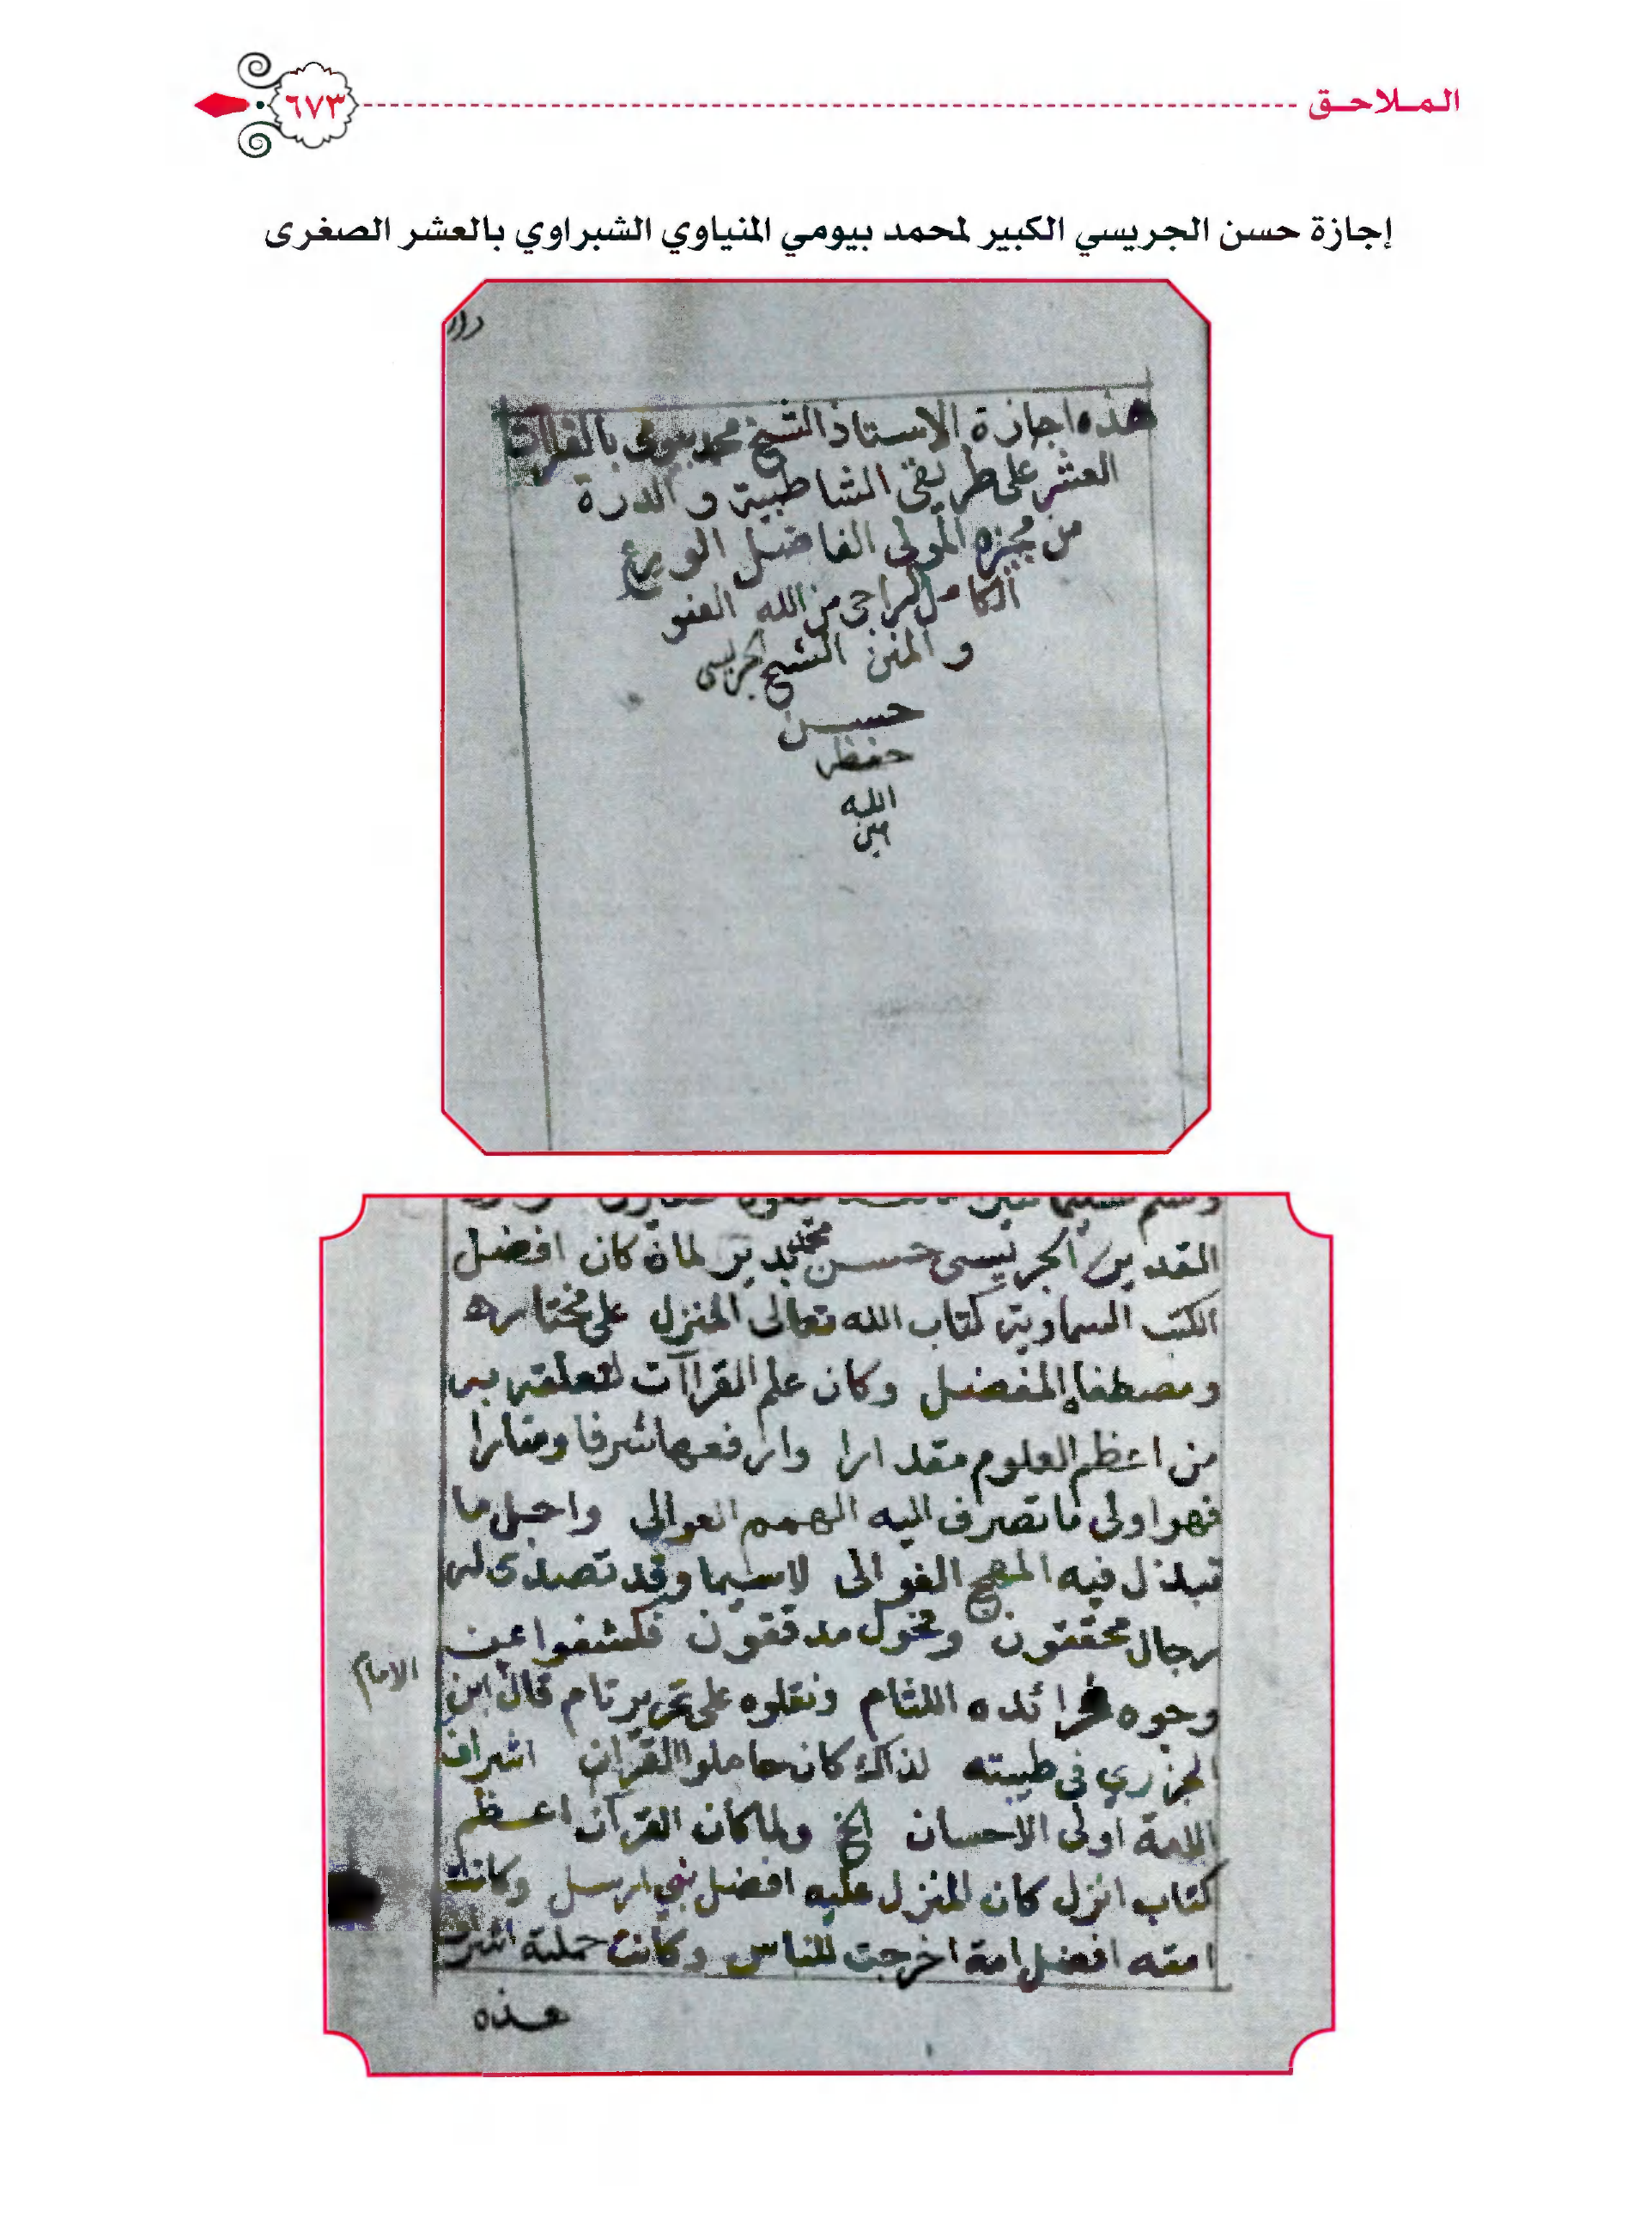 الملاحق
٦٧٣
إجازة حسن الجريسي الكبير لمحمد بيومي المنياوي الشبراوي بالعشر الصغرى
هذه اجازة الاستاذ الشيخ محمد بيومى بالقراات
العشر على طريقى الشاطبية و الدرة
من مجيزه المولى الفاضل الورع
الكامل الراجى من الله العفو
و المنن الشيخ الجريسى
حسن
حفظه
الله
المقدير الجريسى حسن محمد بدير لما كان افضل
الكتب السماوية كتاب الله تعالى المنزل على مختاره
ومصطفاه المفضل وكان علم القراآت لتعلقه به
من اعظم العلوم مقدارا وارفعها شرفا ومنارا
فهو اولى ما تصرف اليه الهمم العوالى واجل ما
تبذل فيه المهج الغوالى لاسيما وقد تصدى له
رجال محققون وفحول مدققون فكشفوا عن
وجوه فرائده اللثام ونقلوه على تحرير تام قال ابن
الامام
الجزري فى طيبته لذاك كان حاملوا القرآن اشراف
الامة اولى الاحسان الخ ولما كان القرآن اعظم
كتاب انزل كان المنزل عليه افضل نبي ارسل وكانت
امته افضل امة اخرجت للناس وكانت حملته اشرف
هذه